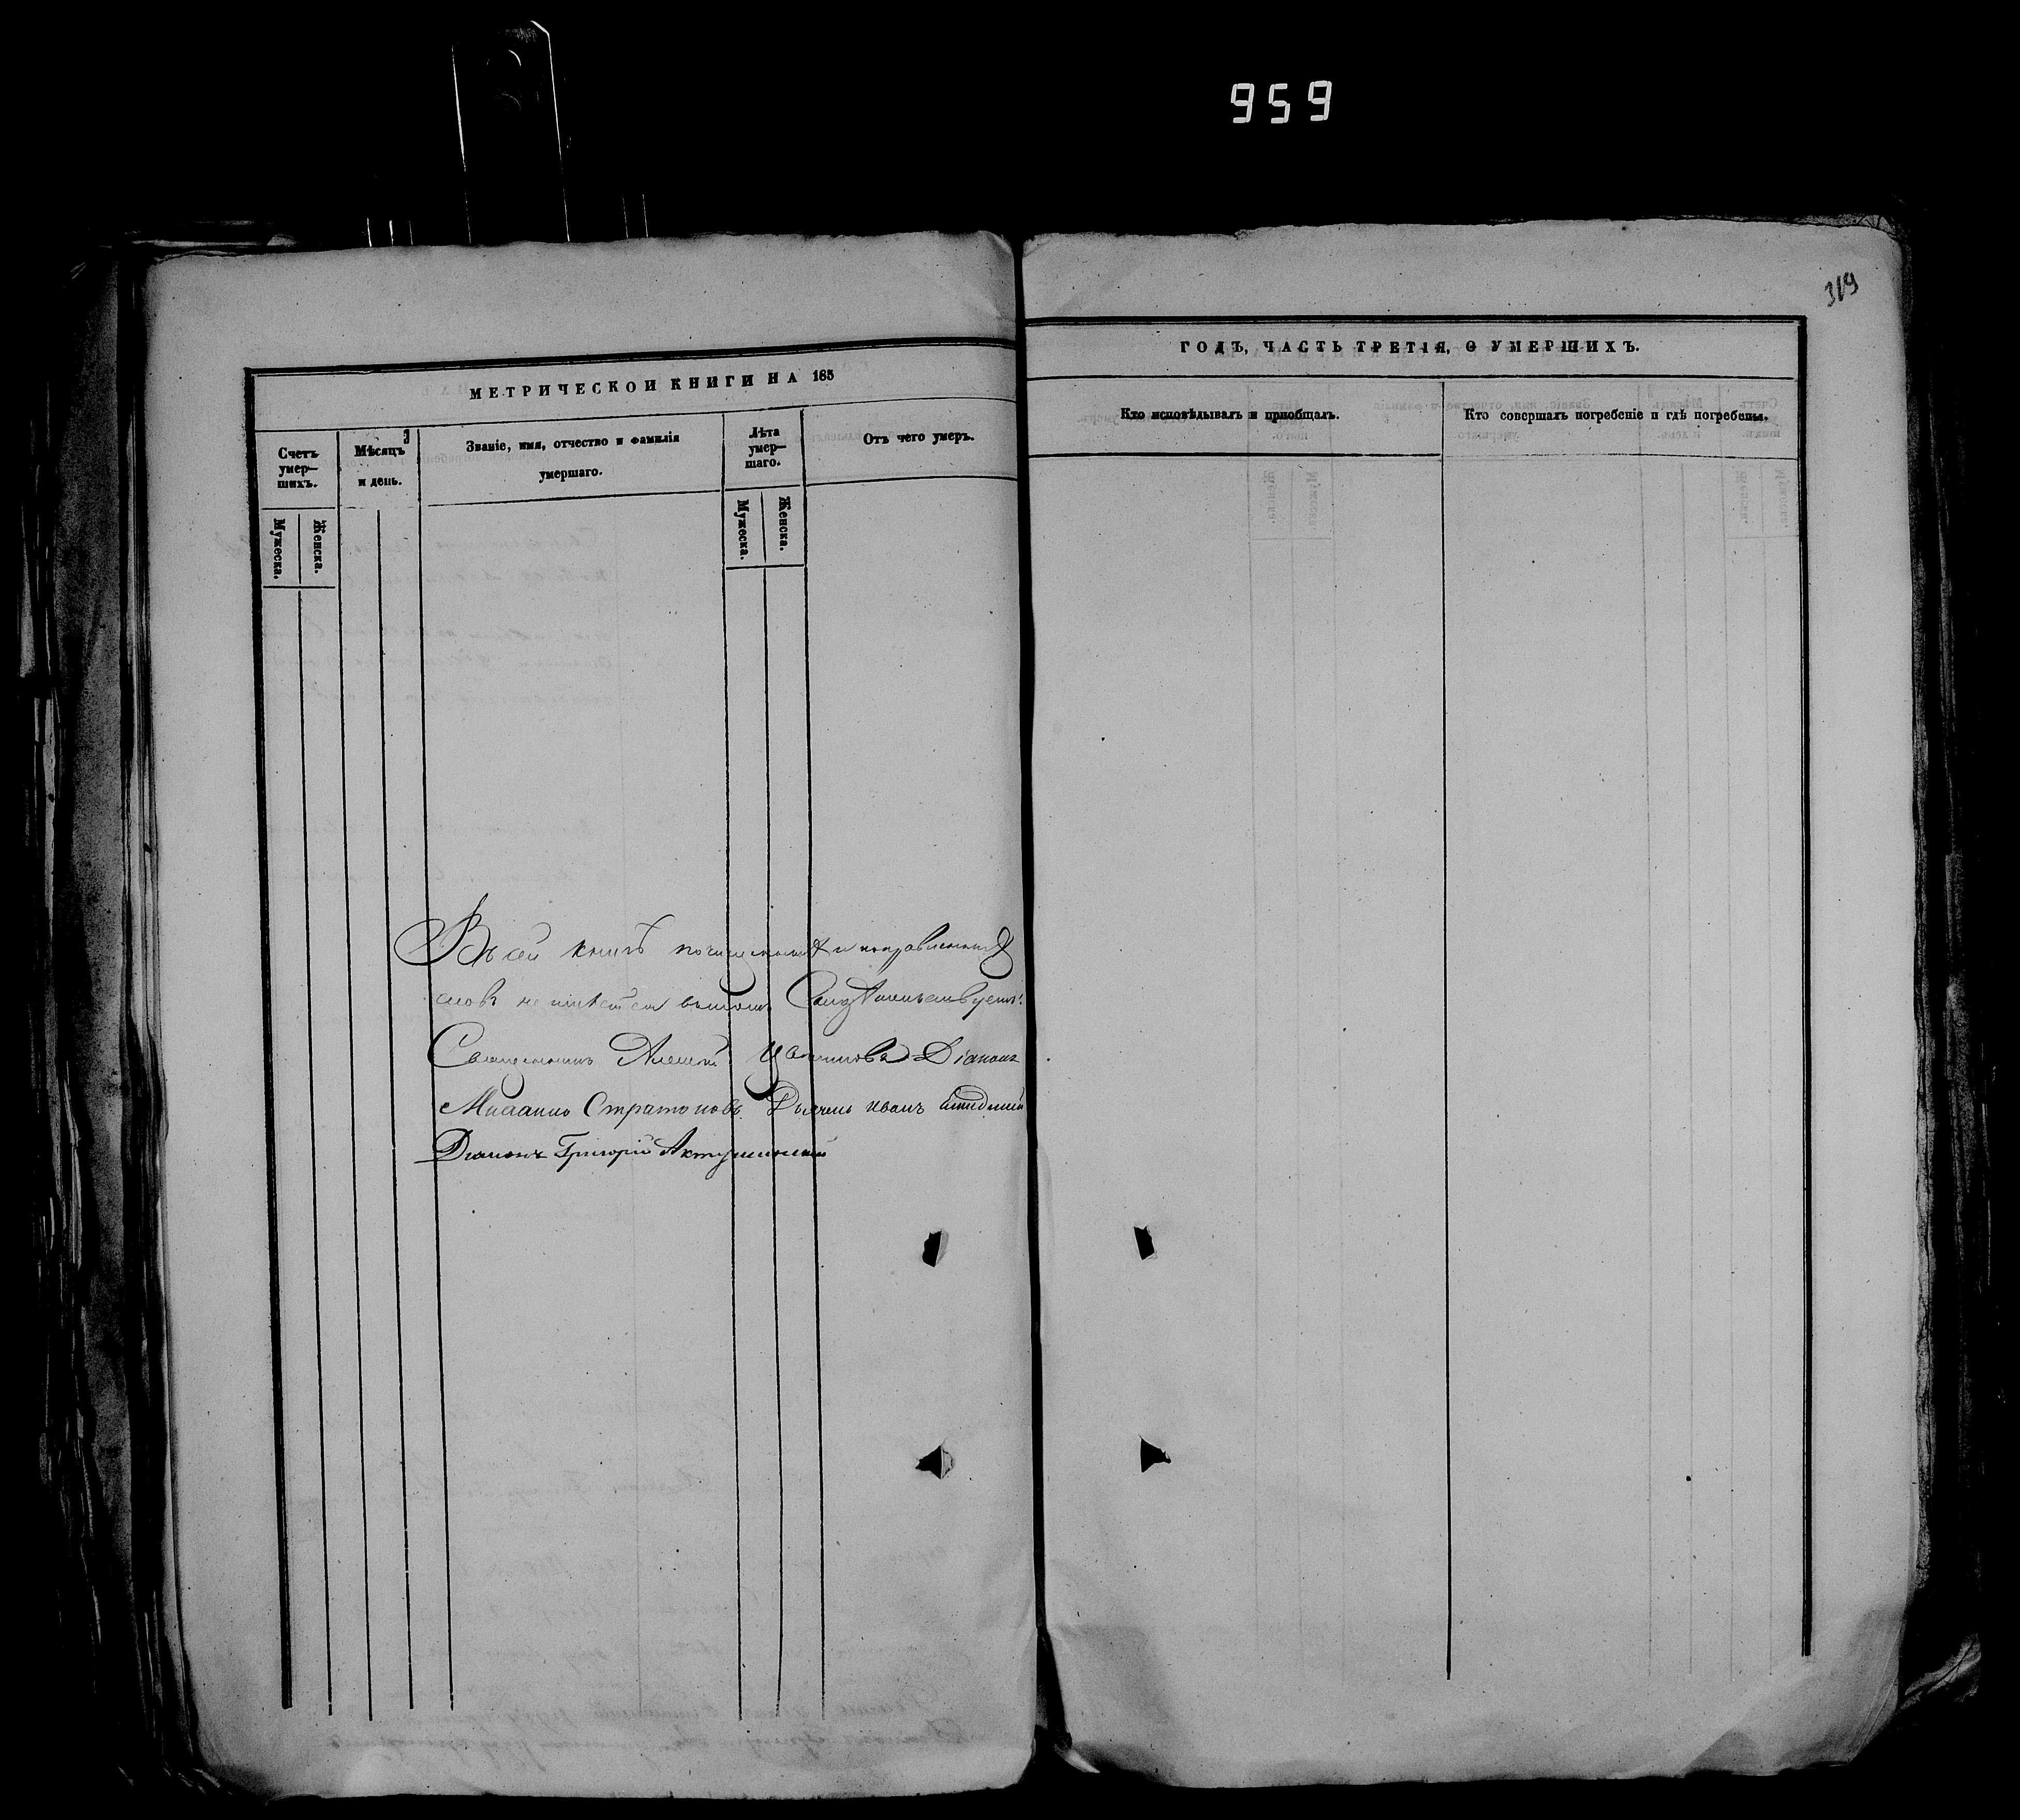 959
319
МЕТРИЧЕСКОЙ КНИГИ НА 185
ГОДЪ, ЧАСТЬ ТРЕТІЯ, О УМЕРШИХЪ.
Счетъ
умер-
шихъ.
Мужеска.
Женска.
Мѣсяцъ
и день.
Званіе, имя, отчество и фамилія
умершаго.
Лѣта
умер-
шаго.
Мужеска.
Женска.
Отъ чего умеръ.
Кто исповѣдывалъ и пріобщалъ.
Кто совершалъ погребеніе и гдѣ погребены.
Въ сей книгѣ почищенныхъ и поправленныхъ
словъ не имѣется въ томъ Свидѣтельствуемъ:
Священникъ Алексѣй Діаконъ
Стратоновъ Дьячекъ Иванъ
Діаконъ Григорій